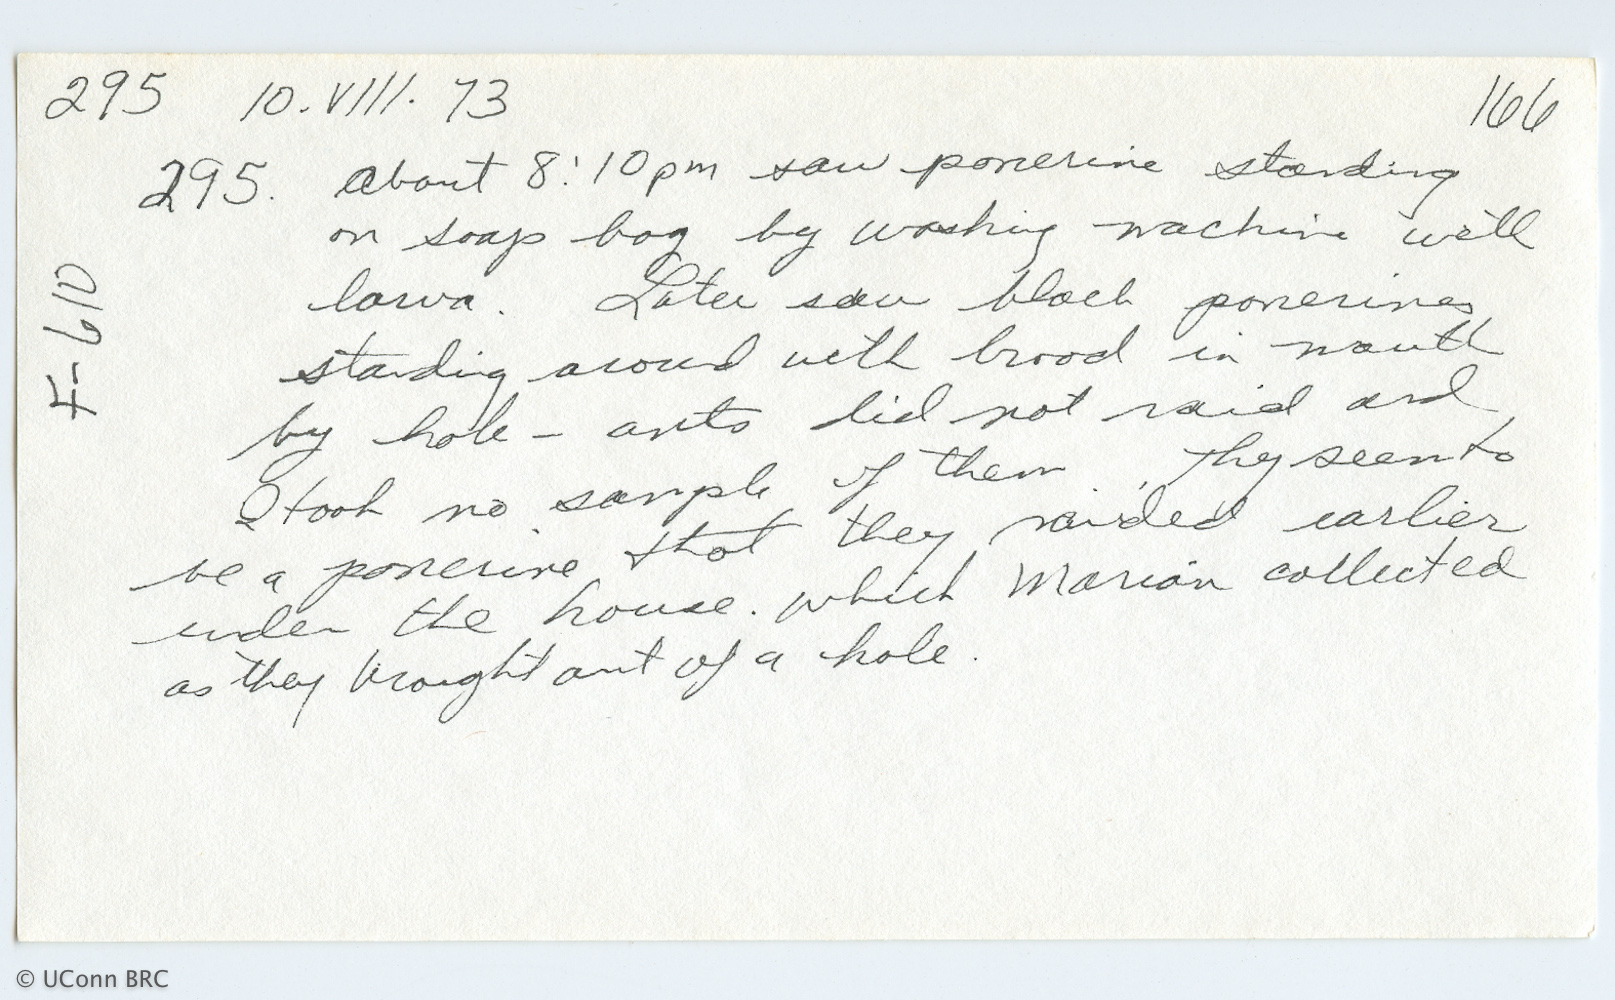 295 10.VIII.73 166
295. About 8:10pm saw ponerine standing
on soap bag by washing machine with
larva. Later saw black ponerines
standing around with brood in mouth
by hole - ants did not raid and
I took no sample of them. They seem to
be a ponerine that they raided earlier
under the house. which Marian collected
as they brought out of a hole.
F-610
© UConn BRC